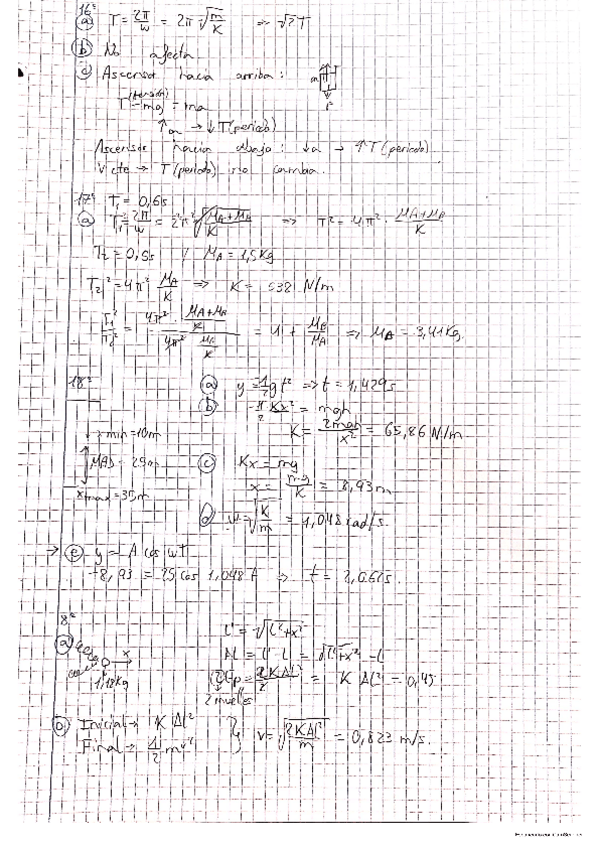 16º
a) T = 2π/ω = 2π √(m/K) => √2 T
b) No afecta.
c) Ascensor hacia arriba:
T (tensión) - mg = ma
↑a → ↓T (periodo)
Ascensor hacia abajo: ↓a → ↑T (periodo)
V cte → T (periodo) no cambia.
17º T₁ = 0,6s
a) T₁ = 2π/ω = 2π √((M_A+M_B)/K) => T² = 4π² · (M_A+M_B)/K
T₂ = 0,5s / M_A = 1,5Kg
T₂² = 4π² M_A/K => K = 538 N/m
T₁²/T₂² = (4π² · (M_A+M_B)/K)/(4π² M_A/K) = 1 + M_B/M_A => M_B = 3,41Kg.
18º
a) y = 1/2 g t² => t = 1,429s
b) 1/2 Kx² = mgh
K = 2mgh/x² = 65,86 N/m
x min = 10m
MAS = 25m
x max = 35m
c) Kx = mg
x = mg/K = 8,93m
d) ω = √(K/m) = 1,048 rad/s.
→ e) y = A cos ωt
-8,93 = 25 cos 1,048 t => t = 2,0
8º
a)
x
1,18Kg
L' = √(L²+x²)
Δl = L' - L = √(L²+x²) - L
Ep = 2KΔl²/2 = K Δl² =
2 muelles
b) Inicial → K Δl²
Final → 1/2 mv²
v = √(2KΔl²/m) = 0,823 m/s.